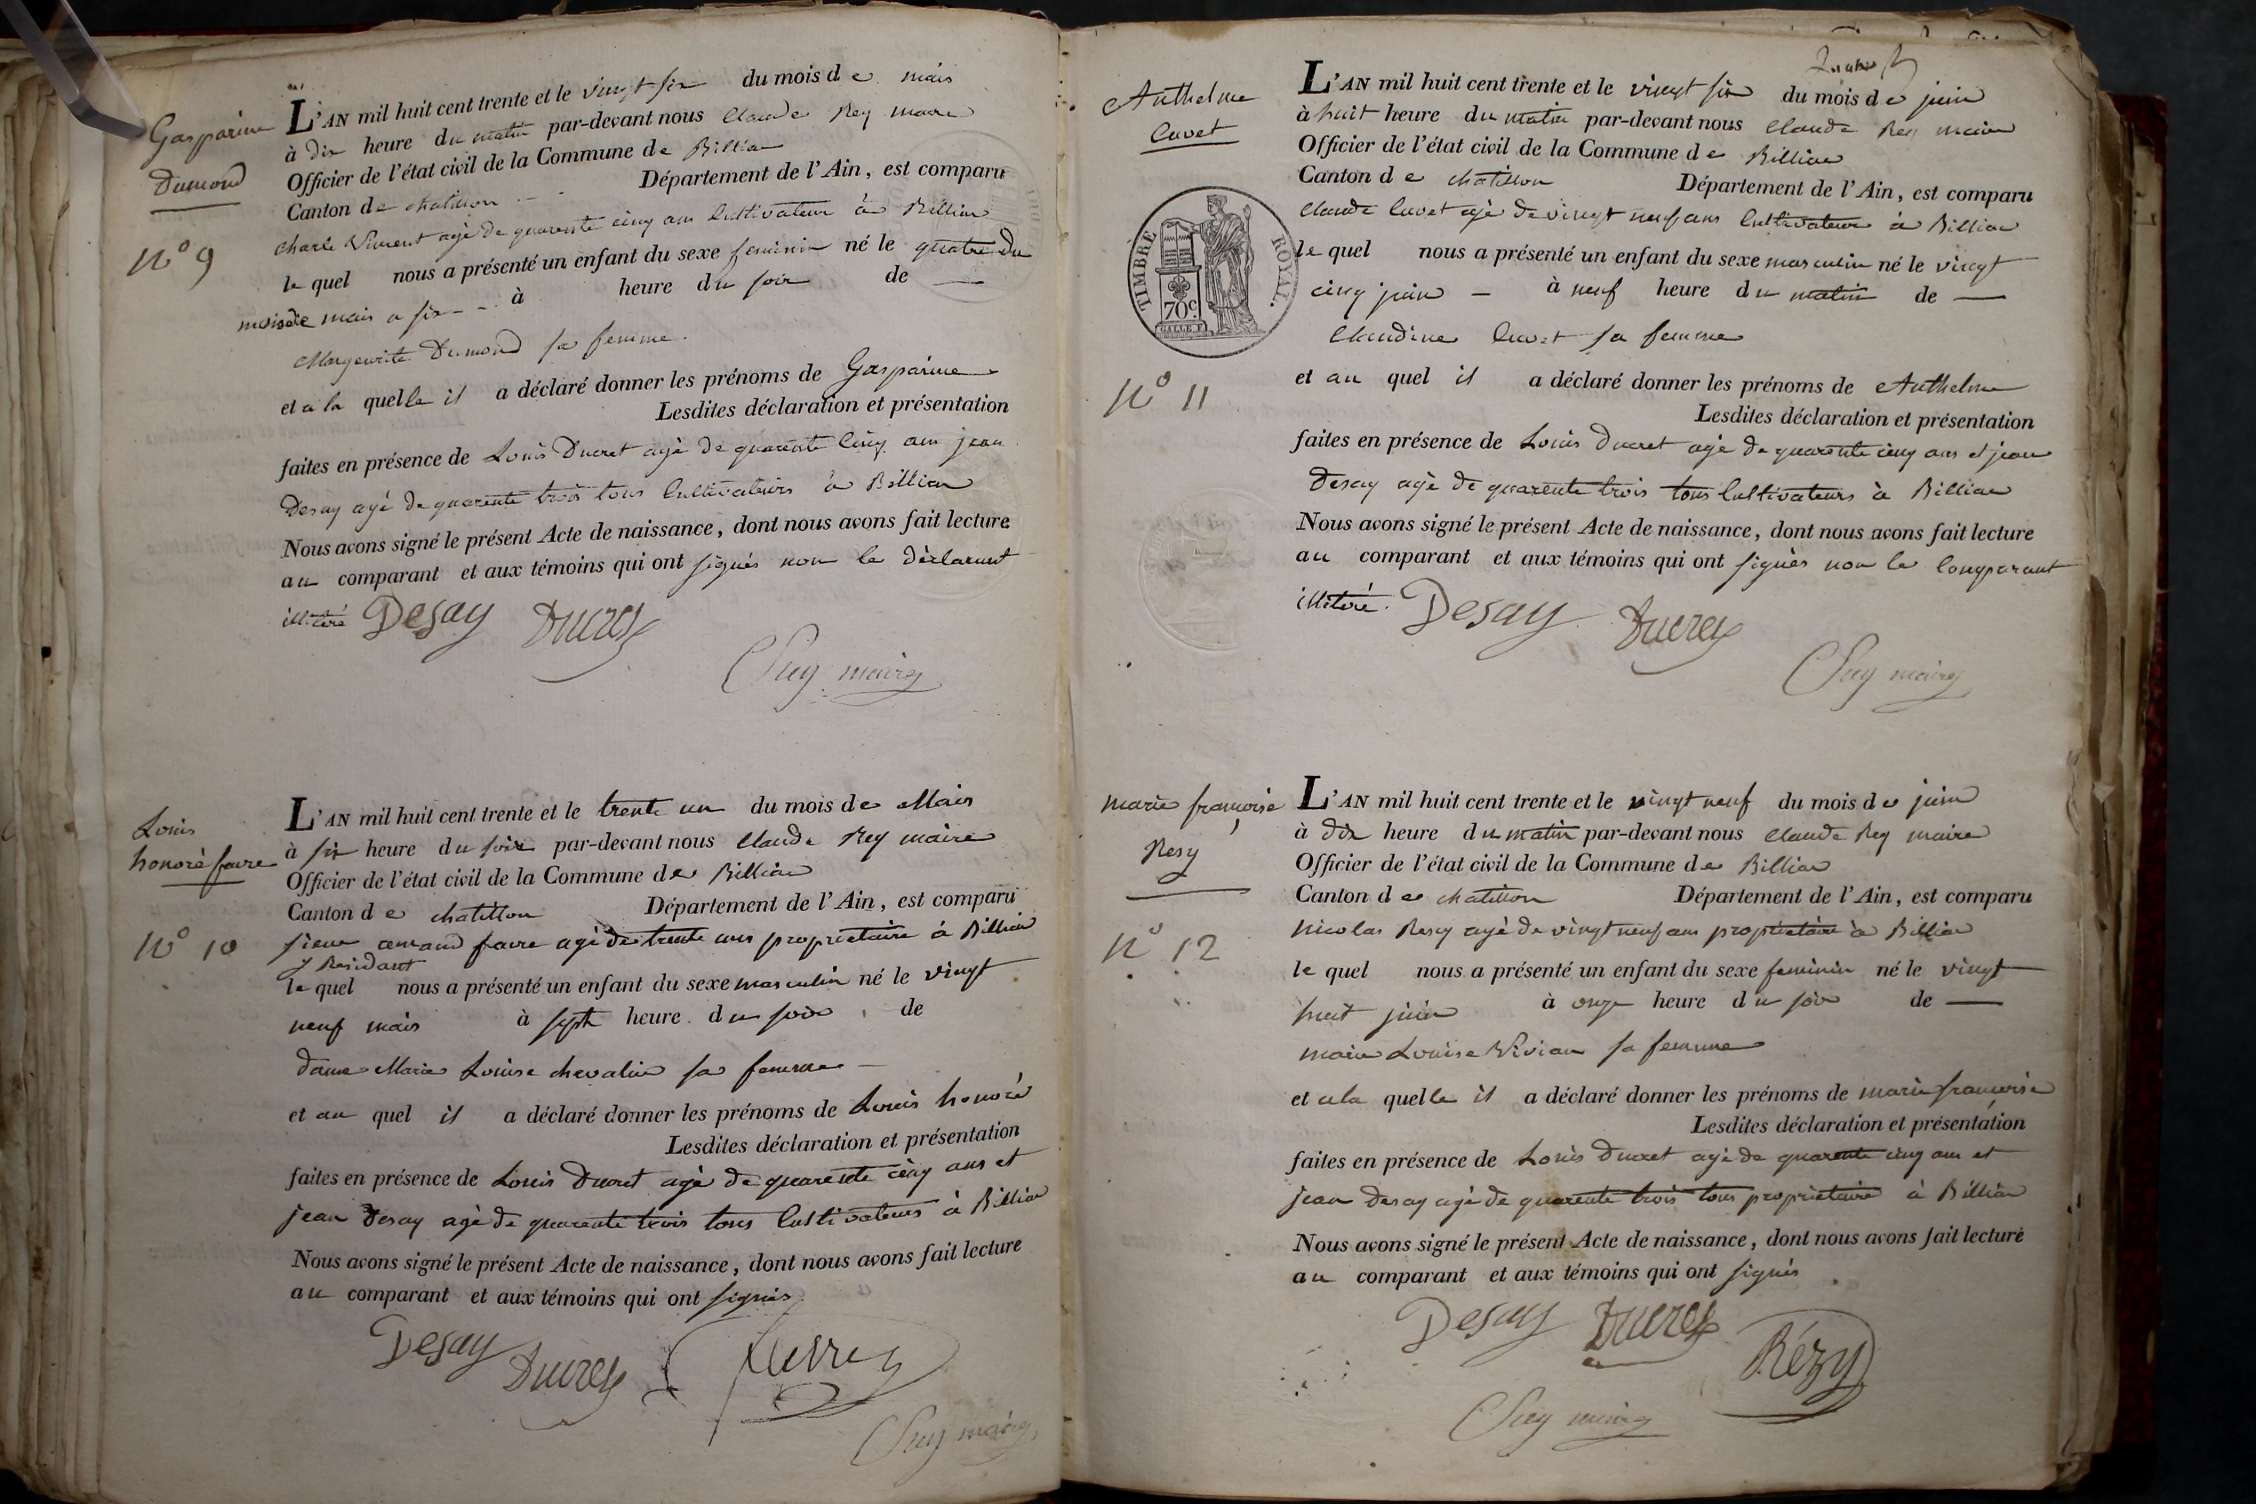 Gasparine
Dumond
N° 9
L'AN mil huit cent trente et le vingt six du mois de mais
à dix heure du matin par-devant nous Claude Rey maire
Officier de l'état civil de la Commune de Billiat
Canton de chatillon Département de l'Ain, est comparu
Charle Vincent agé de quarente cinq ans Cultivateur à Billiat
le quel nous a présenté un enfant du sexe feminin né le quatre du
mois de mais a six à heure du soir de
Marguerite Dumond sa femme
et a la quelle il a déclaré donner les prénoms de Gasparine
Lesdites déclaration et présentation
faites en présence de Louis Ducret agé de quarente cinq ans jean
Desay agé de quarente trois tous Cultivateurs à Billiat
Nous avons signé le présent Acte de naissance, dont nous avons fait lecture
au comparant et aux témoins qui ont signés non le déclarant
illitéré Desay Ducret
Rey maire
Louis
honoré favre
N° 10
L'AN mil huit cent trente et le trente un du mois de Mais
à six heure du soir par-devant nous Claude Rey maire
Officier de l'état civil de la Commune de Billiat
Canton de chatillon Département de l'Ain, est comparu
sieur armand favre agé de trente ans propriétaire à Billiat
y Residant
le quel nous a présenté un enfant du sexe masculin né le vingt
neuf mais à sept heure du soir de
dame Marie Louise chevalier sa femme
et au quel il a déclaré donner les prénoms de Louis honoré
Lesdites déclaration et présentation
faites en présence de Louis Ducret agé de quarente cinq ans et
jean Desay agé de quarente trois tous Cultivateurs à Billiat
Nous avons signé le présent Acte de naissance, dont nous avons fait lecture
au comparant et aux témoins qui ont signés
Desay Ducret
Rey maire
Anthelme
Cuvet
TIMBRE ROYAL.
70c.
N° 11
L'AN mil huit cent trente et le vingt six du mois de juin
à huit heure du matin par-devant nous Claude Rey maire
Officier de l'état civil de la Commune de Billiat
Canton de chatillon Département de l'Ain, est comparu
Claude Cuvet agé de vingt neuf ans Cultivateur à Billiat
le quel nous a présenté un enfant du sexe masculin né le vingt
cinq juin à neuf heure du matin de
Claudine Cuvet sa femme
et au quel il a déclaré donner les prénoms de Anthelme
Lesdites déclaration et présentation
faites en présence de Louis Ducret agé de quarente cinq ans et jean
Desay agé de quarente trois tous Cultivateurs à Billiat
Nous avons signé le présent Acte de naissance, dont nous avons fait lecture
au comparant et aux témoins qui ont signés non le Comparant
illitéré. Desay Ducret
Rey maire
marie françoise
Resy
N° 12
L'AN mil huit cent trente et le vingt neuf du mois de juin
à dix heure du matin par-devant nous Claude Rey maire
Officier de l'état civil de la Commune de Billiat
Canton de chatillon Département de l'Ain, est comparu
Nicolas Resy agé de vingt neuf ans propriétaire à Billiat
le quel nous a présenté un enfant du sexe feminin né le vingt
huit juin à onze heure du soir de
marie Louise Vivian sa femme
et a la quelle il a déclaré donner les prénoms de marie françoise
Lesdites déclaration et présentation
faites en présence de Louis Ducret agé de quarente cinq ans et
jean Desay agé de quarente trois tous propriétaire à Billiat
Nous avons signé le présent Acte de naissance, dont nous avons fait lecture
au comparant et aux témoins qui ont signés
Desay Ducret Rézy
Rey maire